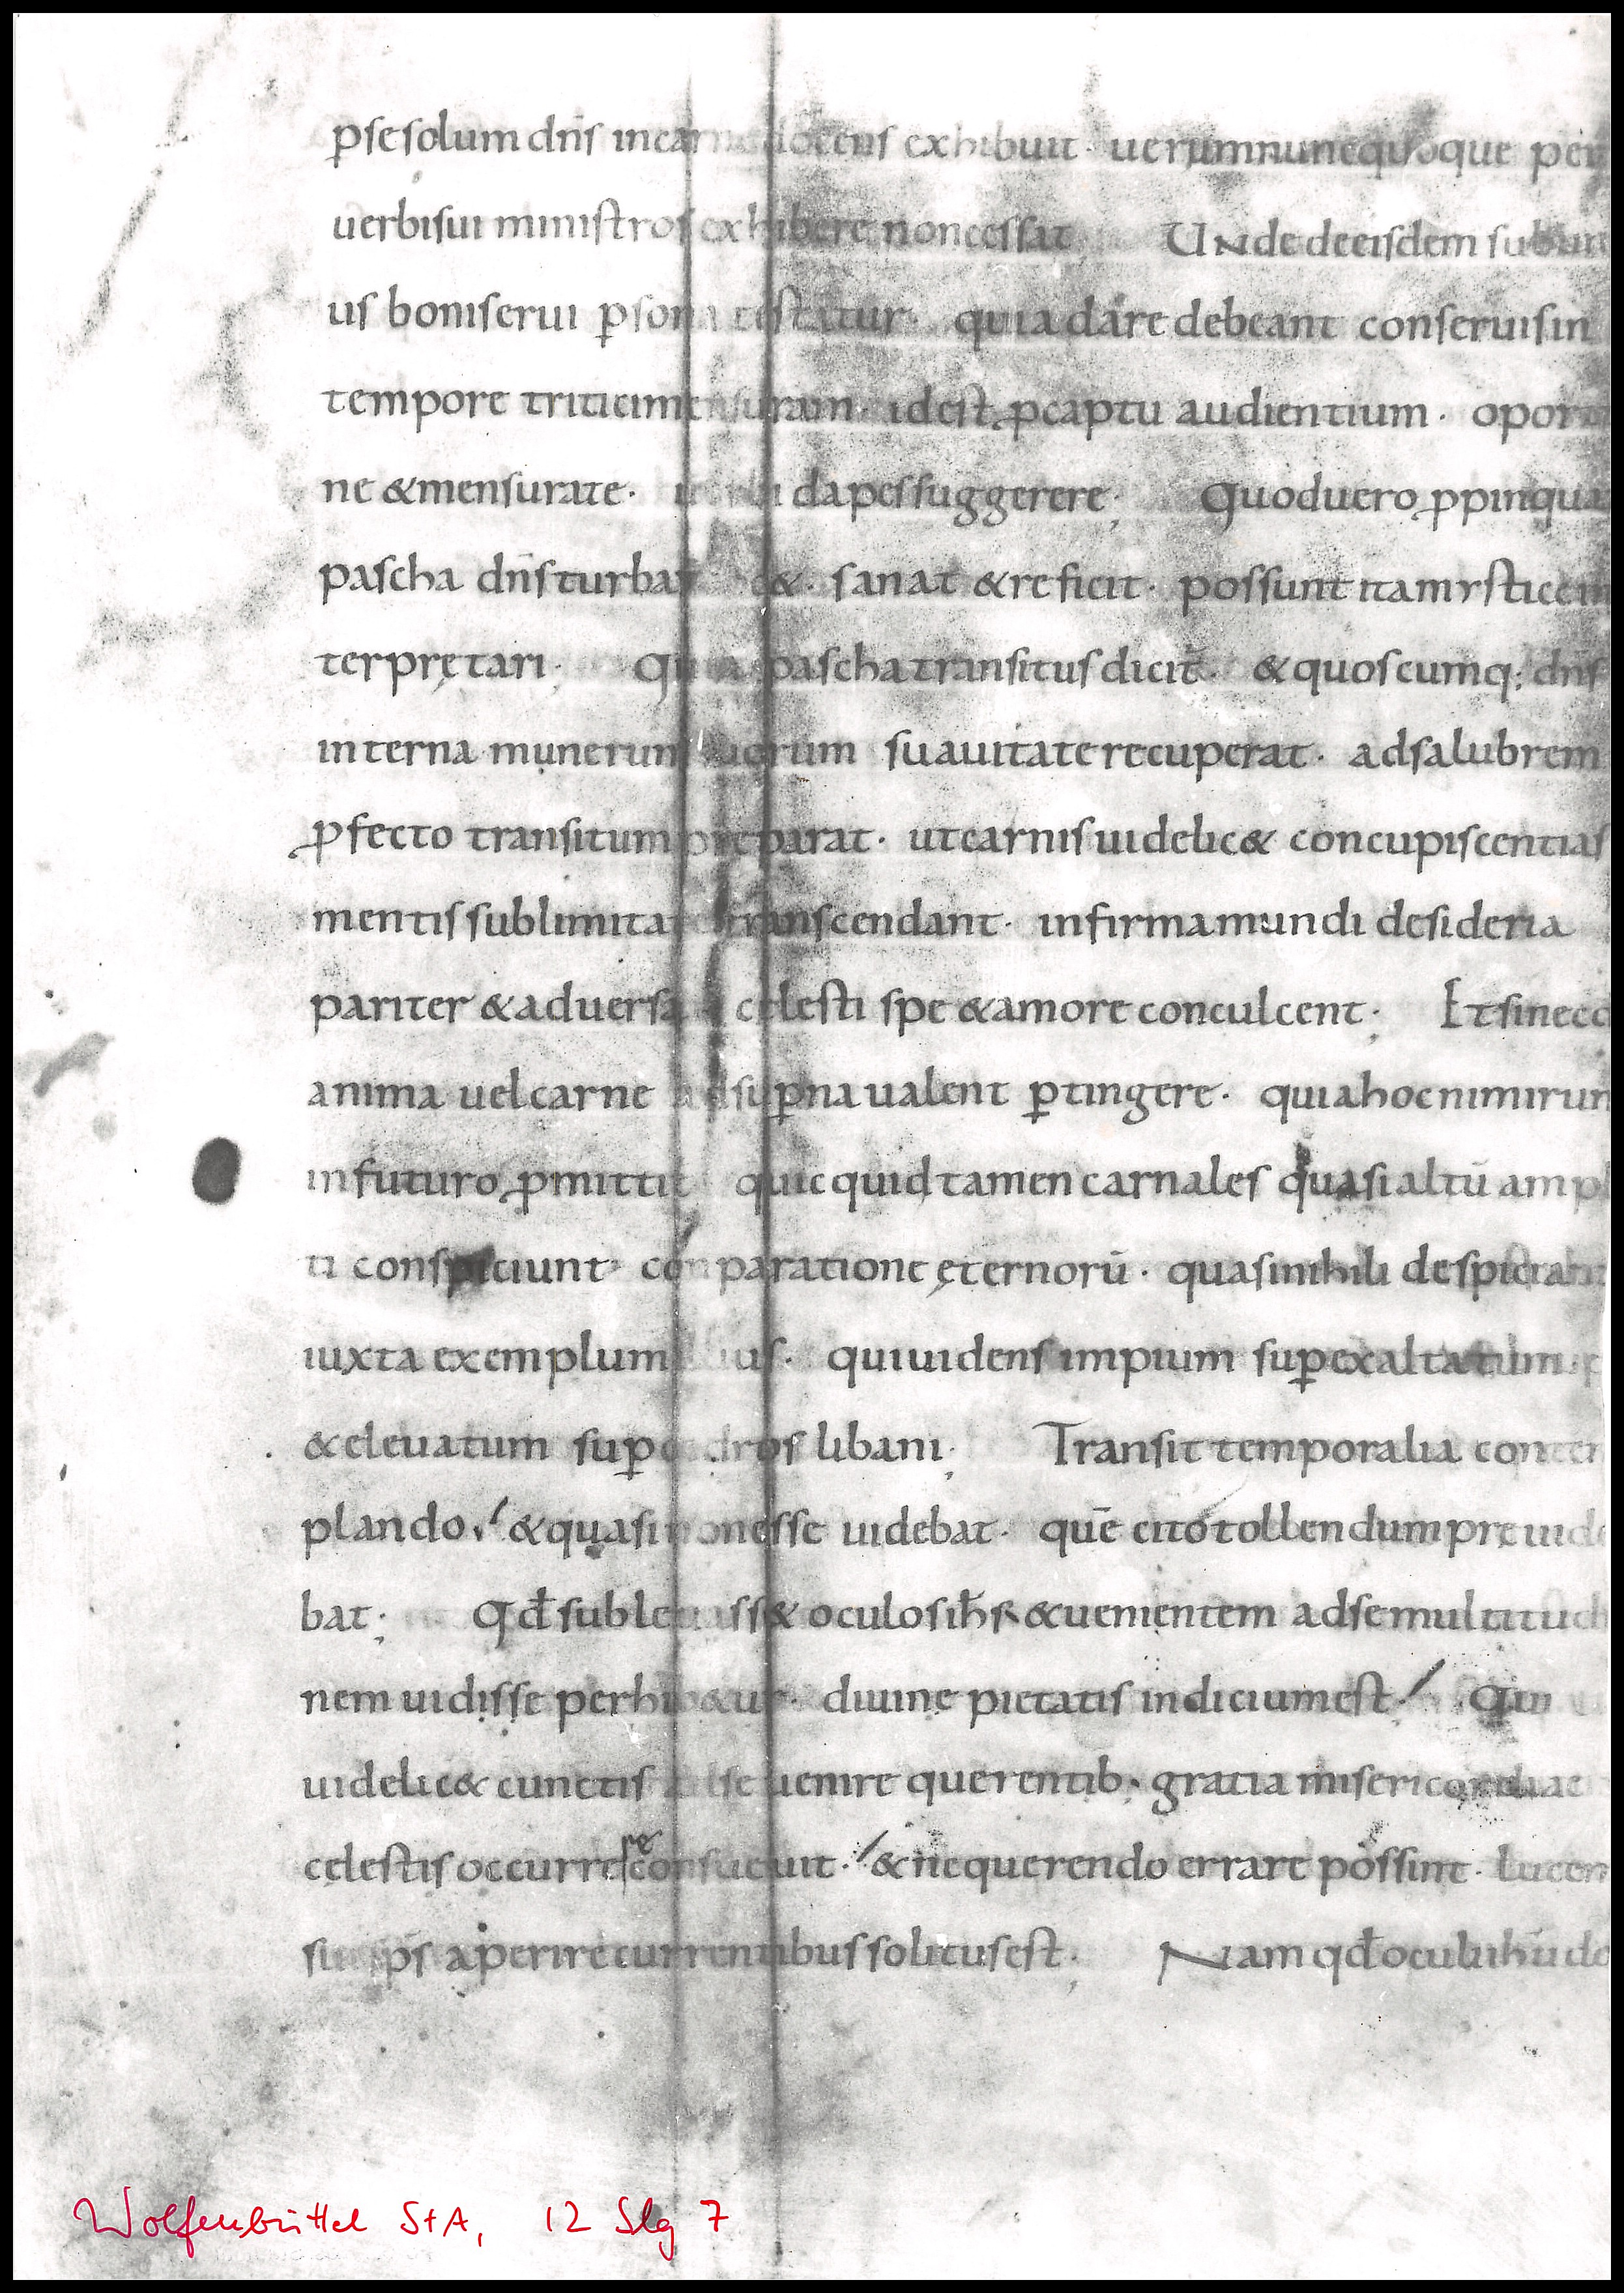 ꝑse solum dn̄s in carne docens exhibuit· uerum nunc quoque per
uerbi sui ministros exhibere non cessat UNde de eisdem sub un
us boni serui ꝑsona testatur· quia dare debeant conseruis in
tempore tritici mensuram· id est ꝓ captu audientium· oportu
ne & mensurate· uerbi dapes suggerere; Quod uero ꝓpinquan
pascha dn̄s turbas & sanat & reficit· possunt ita mystice in
terprętari; Quia pascha transitus dicit̄· & quoscumq; dn̄s
interna munerum suorum suauitate recuperat· ad salubrem
ꝓfecto transitum pręparat· ut carnis uidelic& concupiscentias
mentis sublimitate transcendant· infirma mundi desideria
pariter & aduersa cęlesti spe & amore conculcent; Et si necd
anima uel carne ad suꝑna ualent ꝑtingere· quia hoc nimirum
in futuro ꝓmittit quicquid tamen carnales quasi altū ampl
ti conspiciunt· conparatione ęternorū· quasi nihili despiciant
iuxta exemplum ius· qui uidens impium suꝑexaltatum·
& eleuatum suꝑ cedros libani; Transit temporalia contem
plando· & quasi non esse uidebat· quē cito tollendum pręuide
bat; Qđ subleuass& oculos ih̄s & uenientem ad se multitudi
nem uidisse perhib&ur· diuinę pietatis indicium est· Qui
uidelic& cunctis ad se uenire querentib; gratia misericordiae
cęlestis occurrere consueuit· & ne querendo errare possint· lucem
sui sp̄s aperire currentibus solitus est; Nam qđ oculi ih̄u do
Wolfenbüttel StA, 12 Slg 7